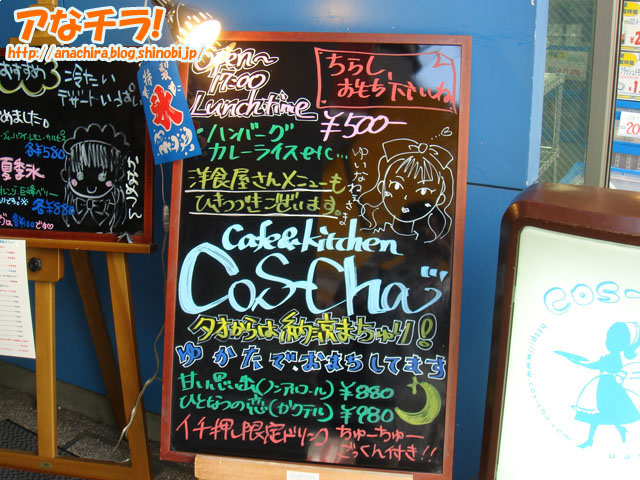 アなチラ!
http://anachira.blog.shinobi.jp/
おすすめ
冷たい
デザートいっぱい
めました
各¥580
夏季氷
各¥880
特製
氷
Open〜
17:00
Lunch time
¥500-
ちらし、
お持ち下さいね
ハンバーグ
カレーライス etc...
洋食屋さんメニューも
ひきつづきございます。
Cafe & kitchen
CoS-Cha
夕方からは納涼まちゅり!
ゆかたでおまちしてます
甘い思い出(ノンアルコール) ¥880
ひとなつの恋(カクテル) ¥980
イチ押し限定ドリンク ちゅーちゅー
ごっくん付き!!
COS-